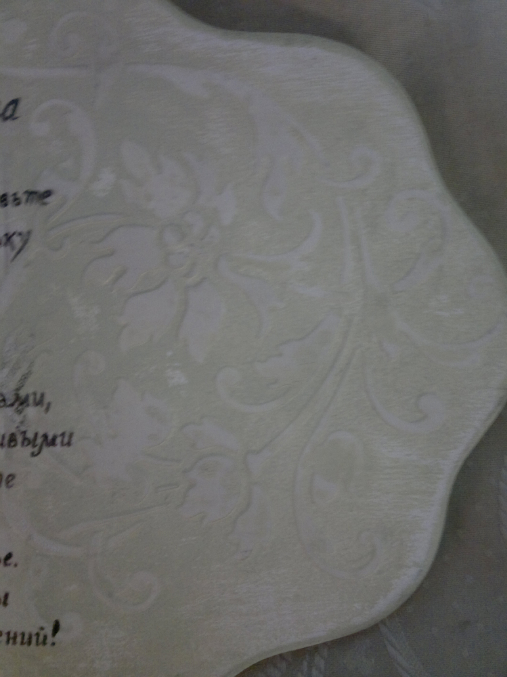 а
вьте
ку
ами,
ивыми
е
е.
ы
ений!